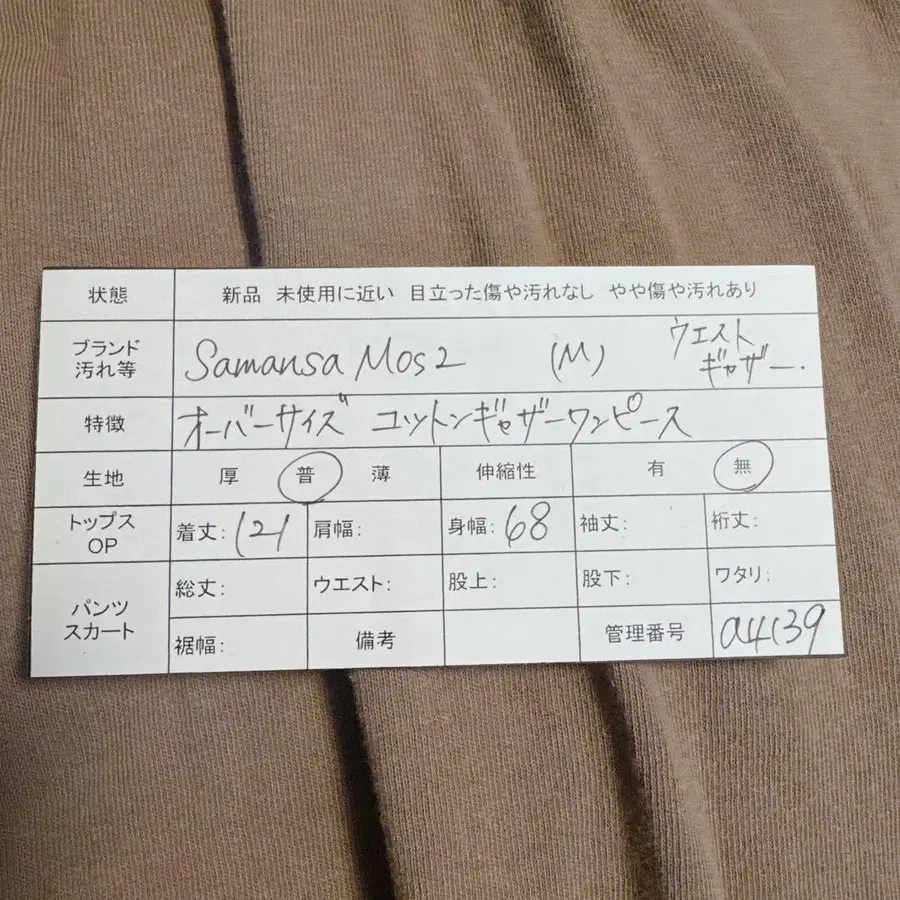 状態 新品 未使用に近い 目立った傷や汚れなし やや傷や汚れあり
ブランド 汚れ等 Samansa Mos2 (M) ウエスト ギャザー.
特徴 オーバーサイズ コットンギャザーワンピース
生地 厚 普 薄 伸縮性 有 無
トップス OP 着丈: 121 肩幅: 身幅: 68 袖丈: 裄丈:
パンツ スカート 総丈: ウエスト: 股上: 股下: ワタリ:
裾幅: 備考 管理番号 a4139